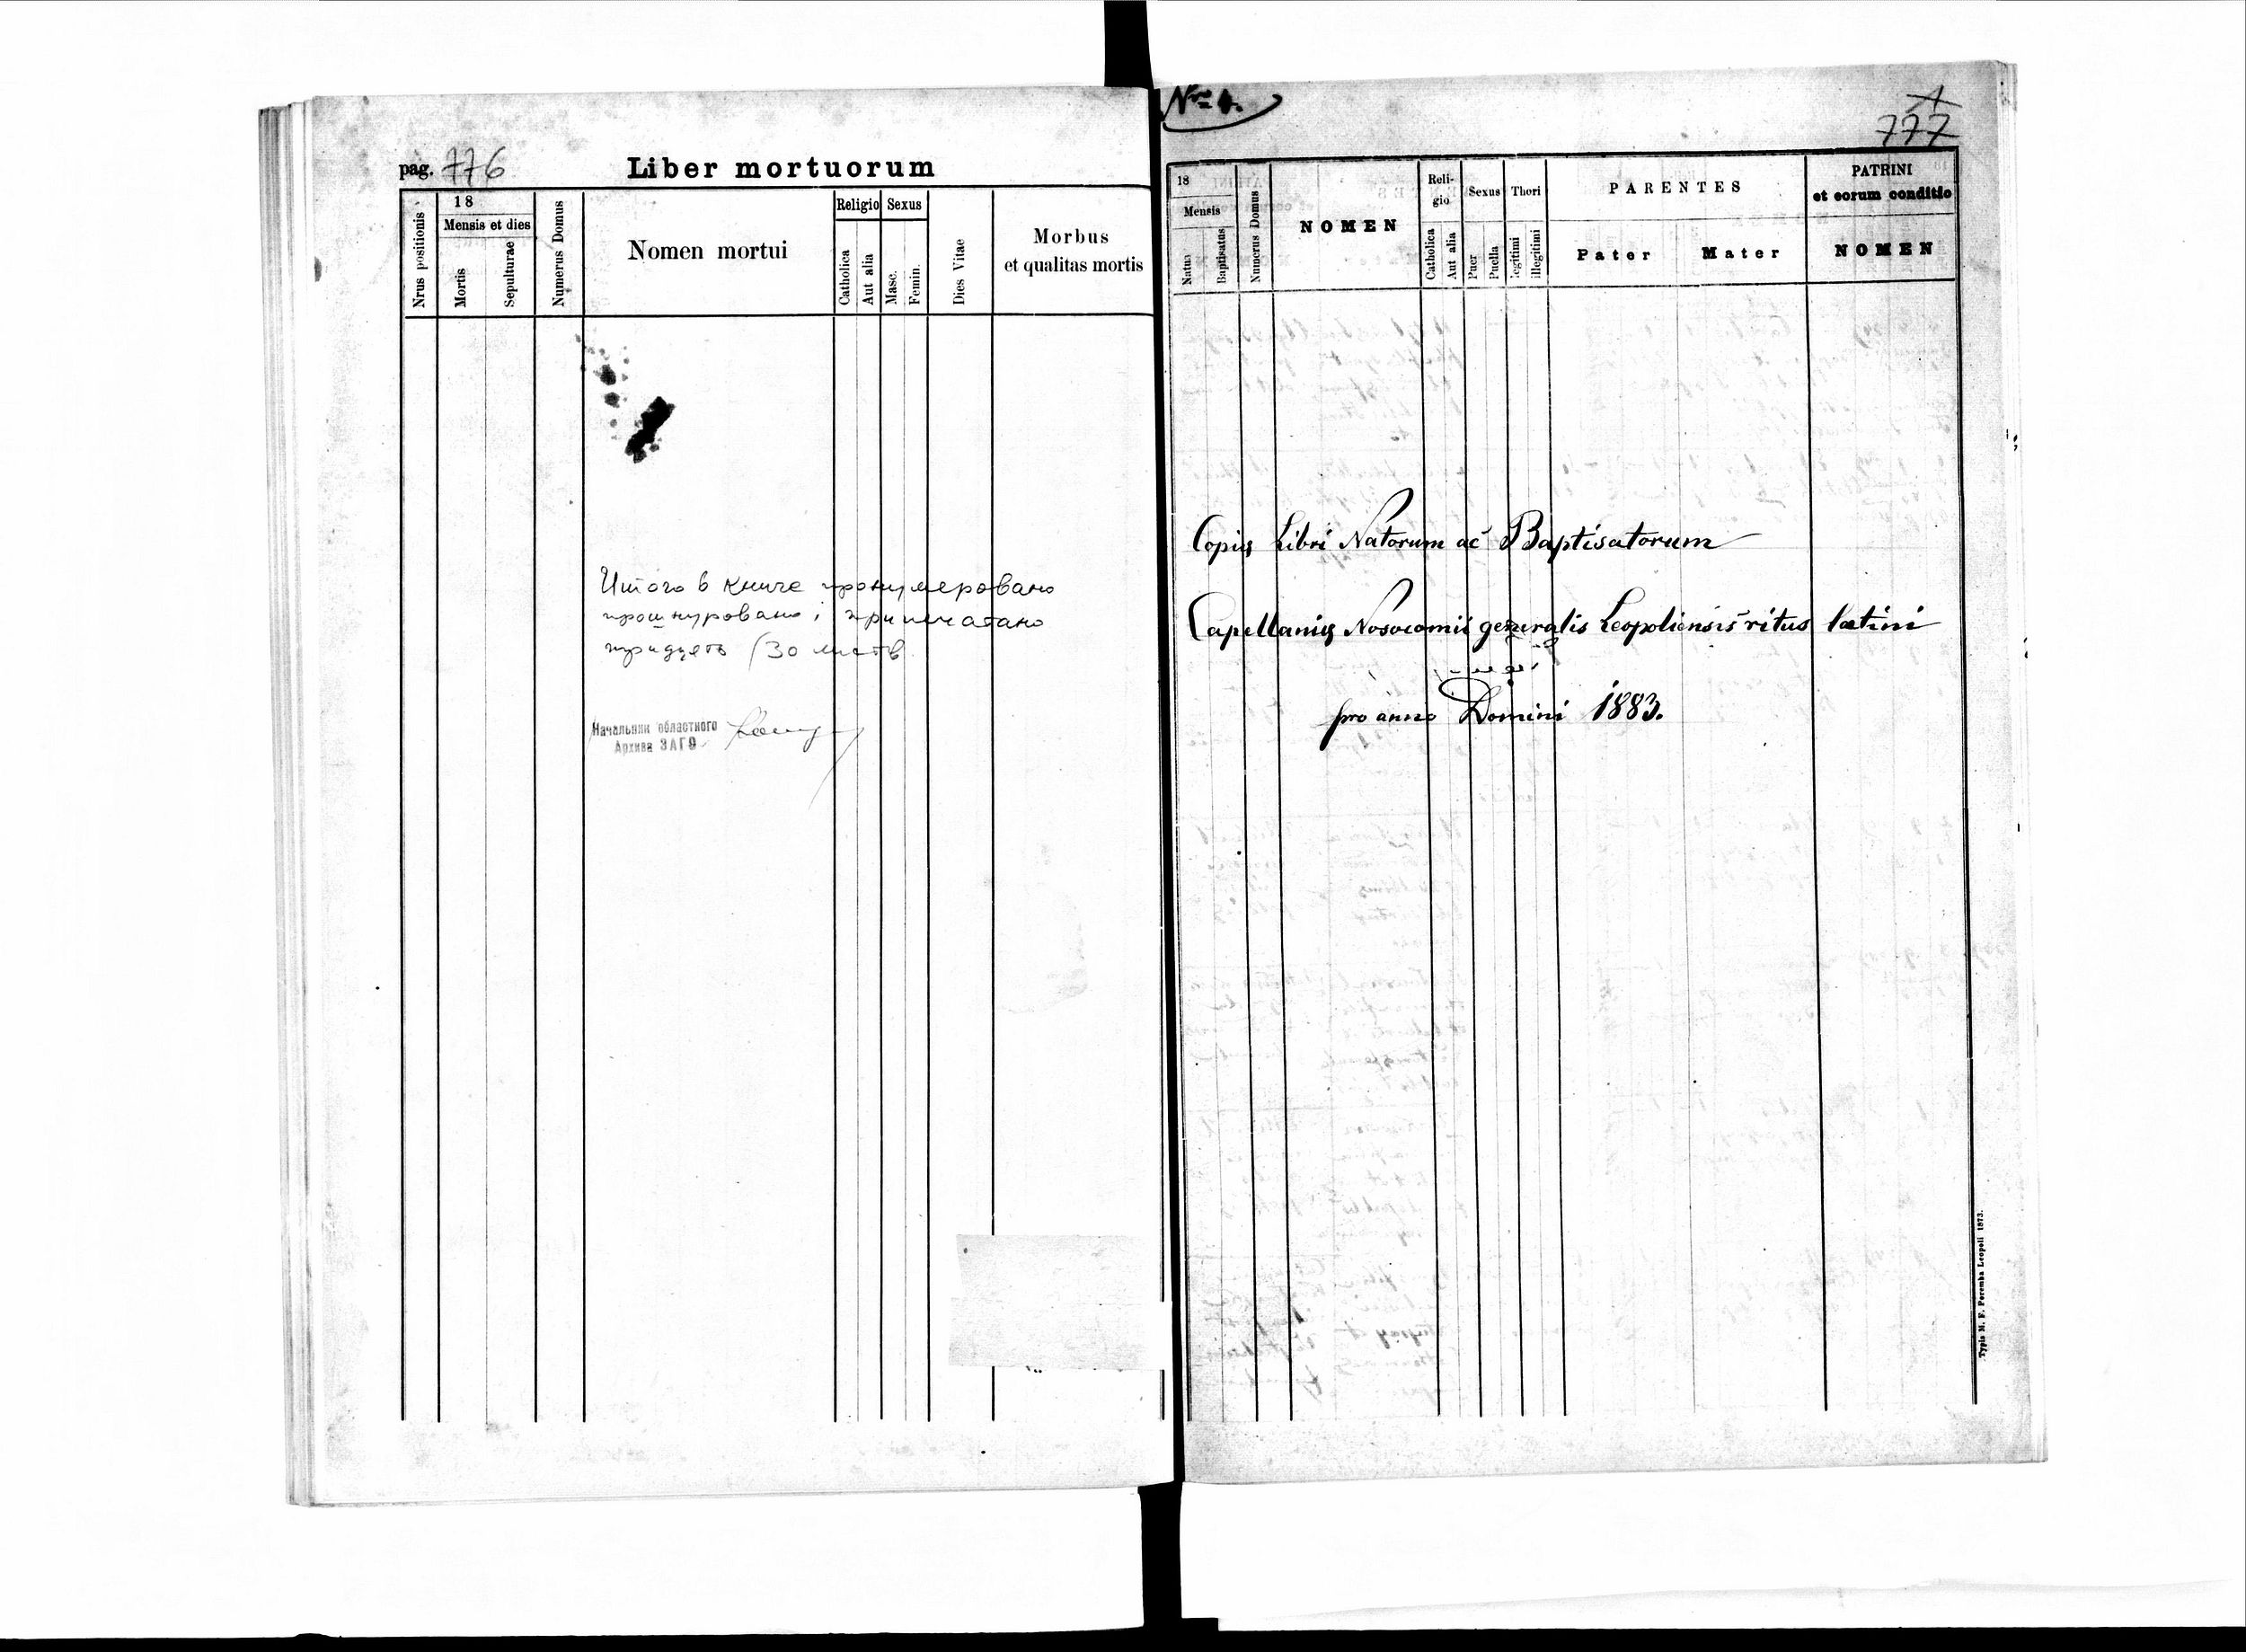 pag. 776
Liber mortuorum
Nrus positionis
18
Mensis et dies
Mortis
Sepulturae
Numerus Domus
Nomen mortui
Religio
Catholica
Aut alia
Sexus
Masc.
Femin.
Dies Vitae
Morbus
et qualitas mortis
Итого в книге пронумеровано
прошнуровано і припечатано
(30 листв
Начальник областного
Архива ЗАГС
Nro 4.
777
18
Mensis
Natus
Baptisatus
Numerus Domus
NOMEN
Reli-
gio
Catholica
Aut alia
Sexus
Puer
Puella
Thori
legitimi
illegitimi
PARENTES
Pater
Mater
PATRINI
et eorum conditio
NOMEN
Copia Libri Natorum ac Baptisatorum
Capellaniae Nosocomii generalis Leopoliensis ritus latini
pro anno Domini 1883.
Typis M. F. Poremba Leopoli 1873.